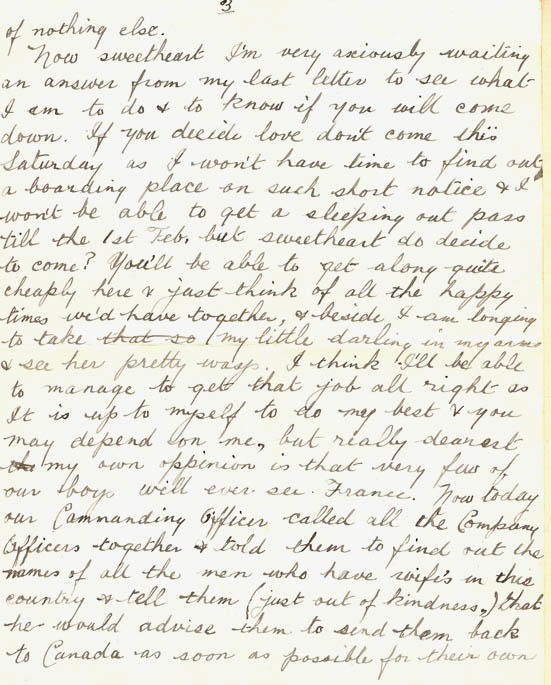 3
of nothing else.
Now sweetheart I'm very axiously waiting
an answer from my last letter to see what
I am to do & to know if you will come
down. If you decide love don't come this
Saturday as I won't have time to find out
a boarding place on such short notice & I
won't be able to get a sleeping out pass
till the 1st Feb. but sweetheart do decide
to come? You'll be able to get along quite
cheaply here & just think of all the happy
times we'd have together, & beside I am longing
to take that so my little darling in my arms
& see her pretty ways. I think I'll be able
to manage to get that job all right as
It is up to myself to do my best & you
may depend on me, but really dearest
my own oppinion is that very few of
our boys will ever see France. Now today
our Commanding Officer called all the Company
Officers together & told them to find out the
names of all the men who have wife's in this
country & tell them (just out of kindness,) that
he would advise them to send them back
to Canada as soon as possible for their own